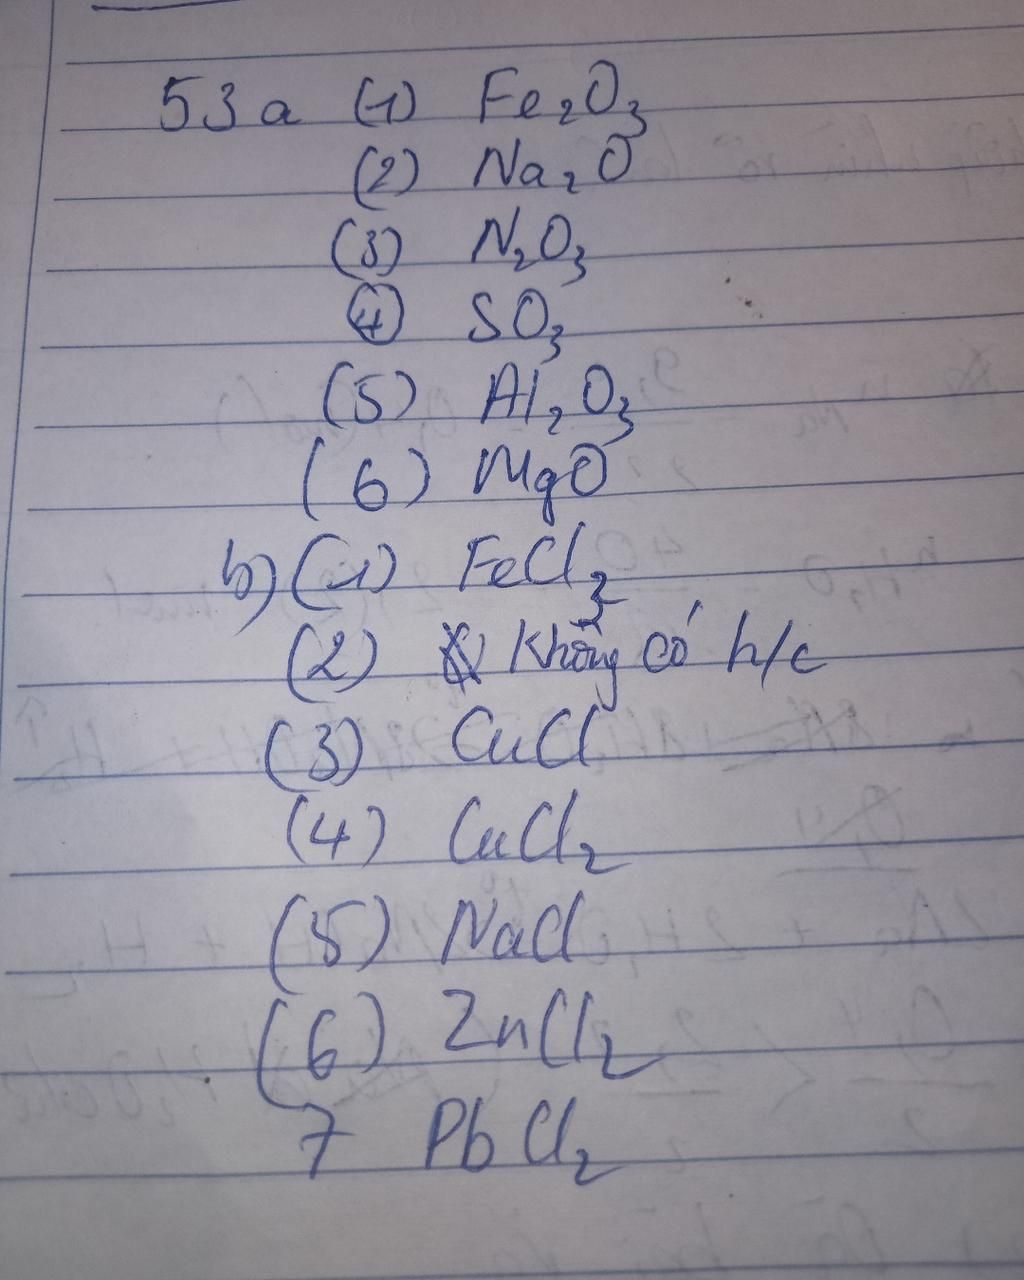 53a (1) Fe₂O₃
(2) Na₂O
(3) N₂O₃
(4) SO₃
(5) Al₂O₃
(6) MgO
b) (1) FeCl₃
(2) Không có h/c
(3) CuCl
(4) CuCl₂
(5) NaCl
(6) ZnCl₂
7 PbCl₂